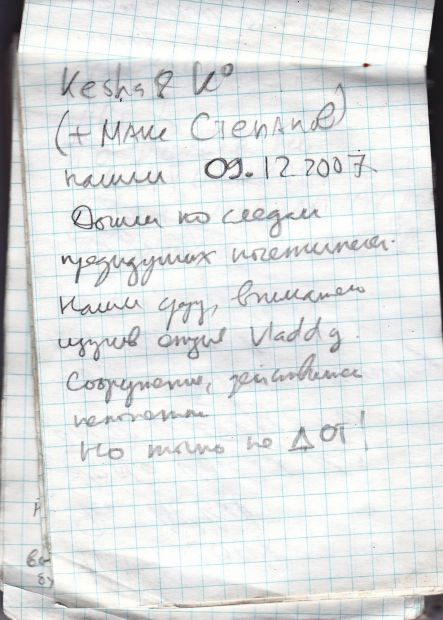 Kesha & Kº
(+ Макс Степанов)
нашли 09.12.2007
Дошли по следам
предидущих посетителей.
Нашли сразу, внимательно
изучив отзыв Vladdy.
Сооружение, действительно
непонятное
Но точно не ДОТ!